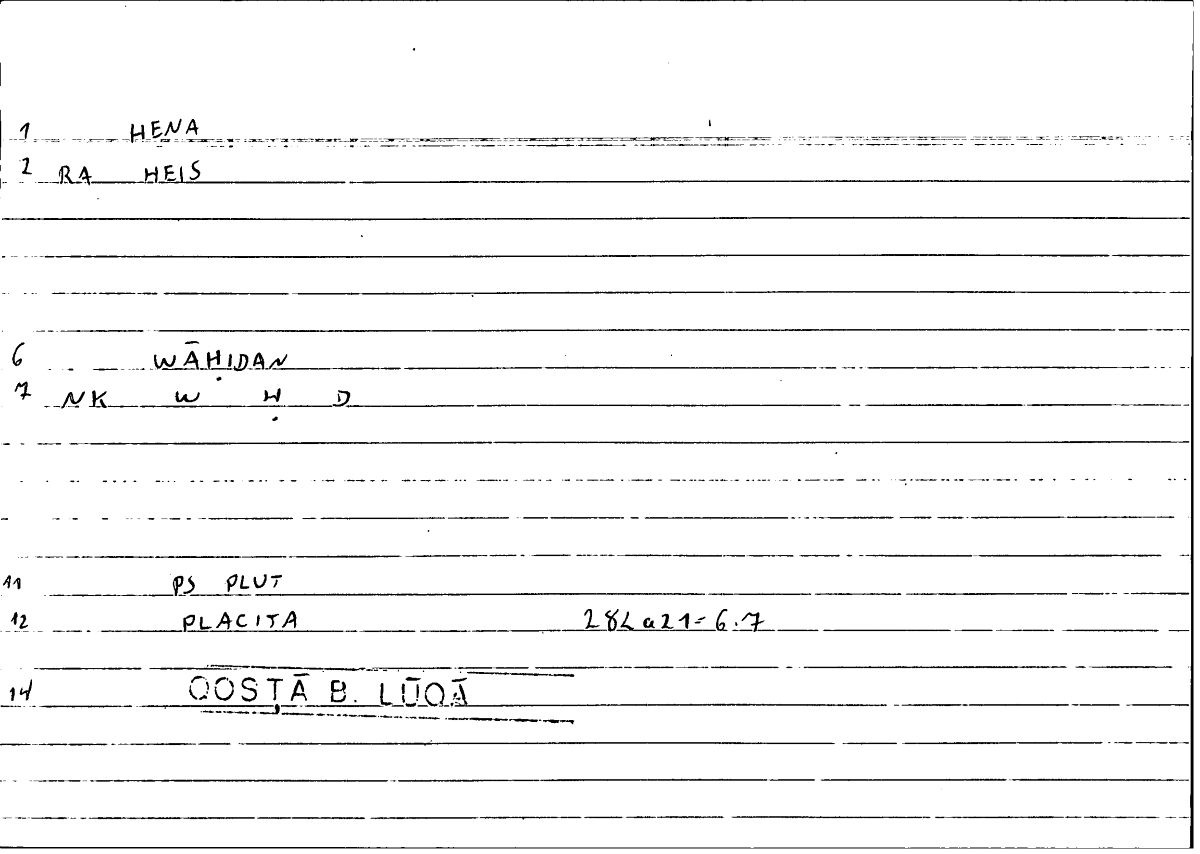 1 HENA
2 RA HEIS
6 WĀḤIDAN
7 NK W Ḥ D
11 PS PLUT
12 PLACITA 282a21=6.7
14 QOSṬĀ B. LŪQĀ